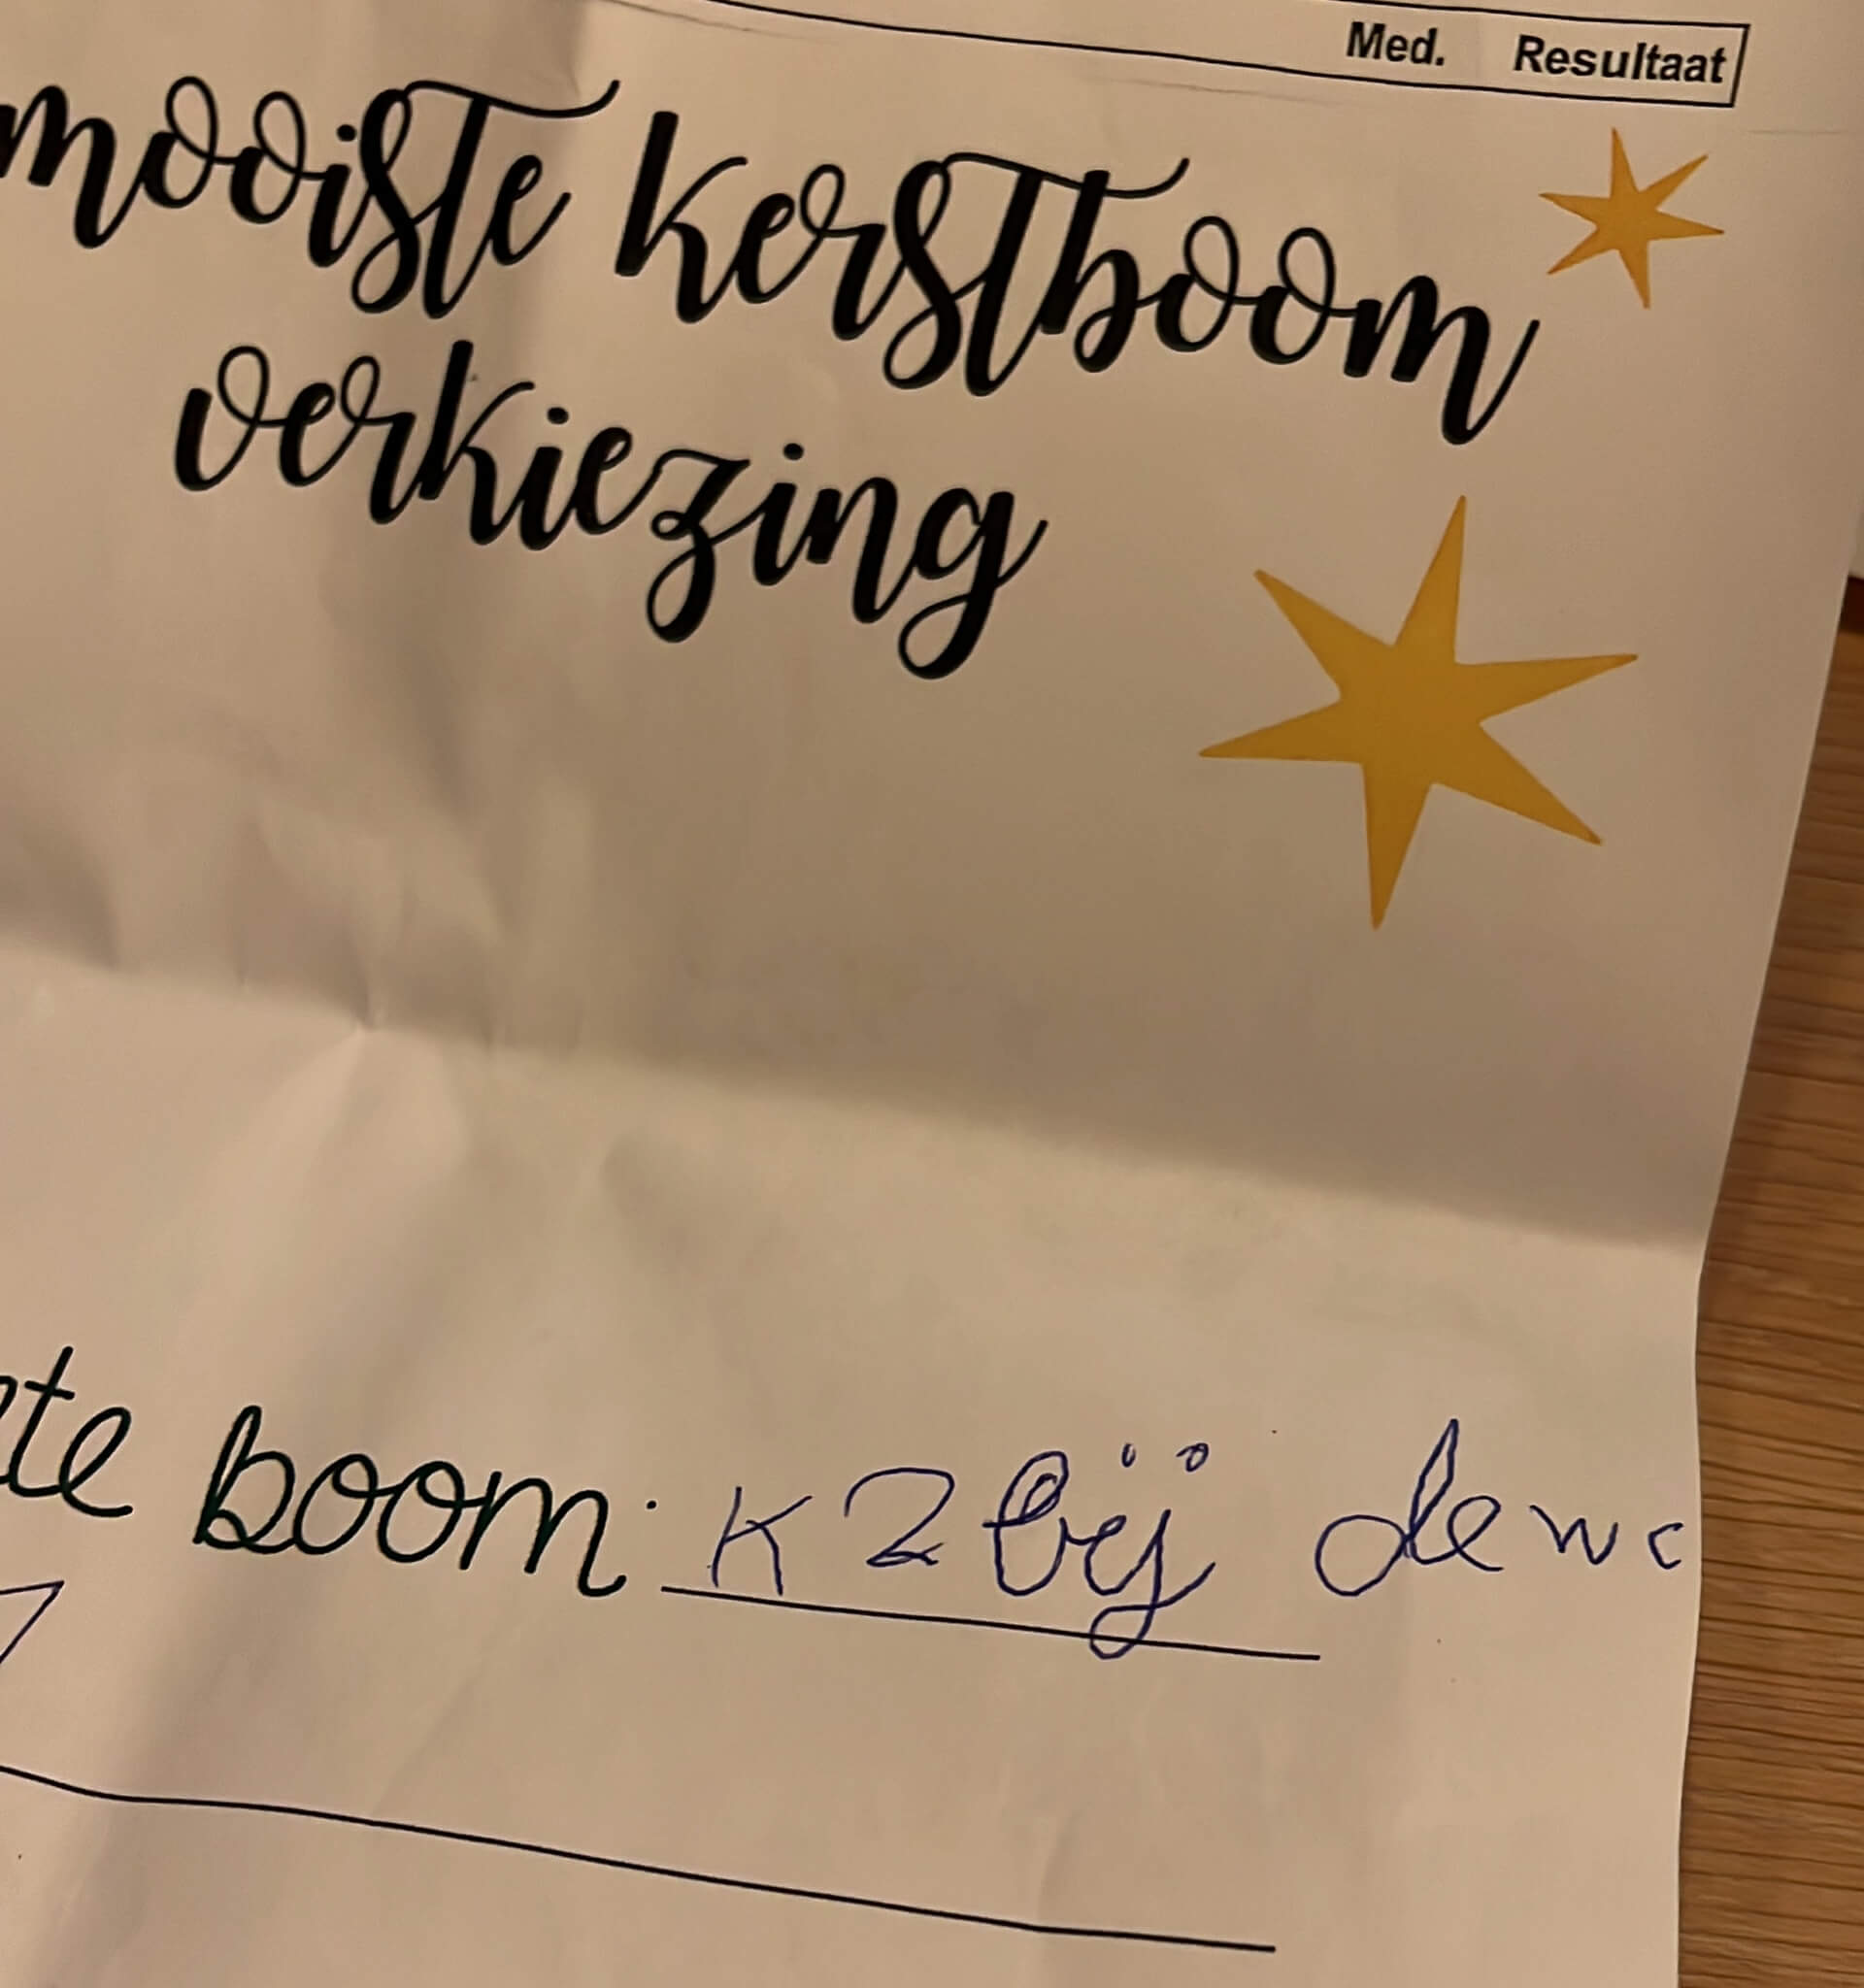 Med. Resultaat
mooiste kerstboom
verkiezing
te boom: K2 bij de wc